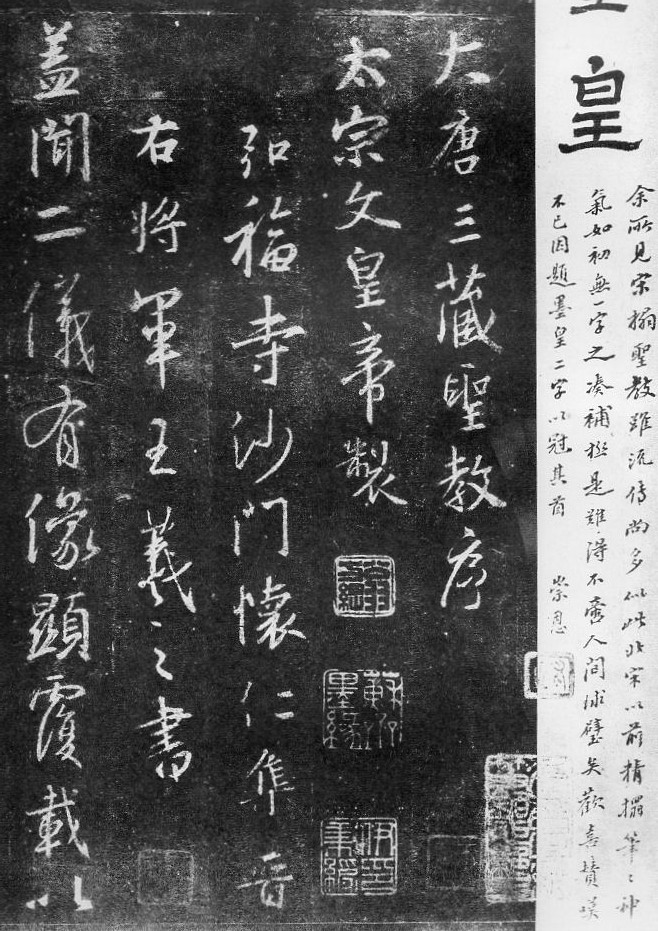 皇
余所見宋搨聖教雖流傳尚多似此北宋以前精搨筆〻神
氣如初無一字之湊補極是難得不啻人間球璧矣歡喜贊嘆
不已因題墨皇二字以冠其首 崇恩
大唐三藏聖教序
太宗文皇帝製
翁方綱
蘇齋墨緣
伊印秉綬
弘福寺沙門懷仁集晉
右將軍王羲之書
蓋聞二儀有像顯覆載以